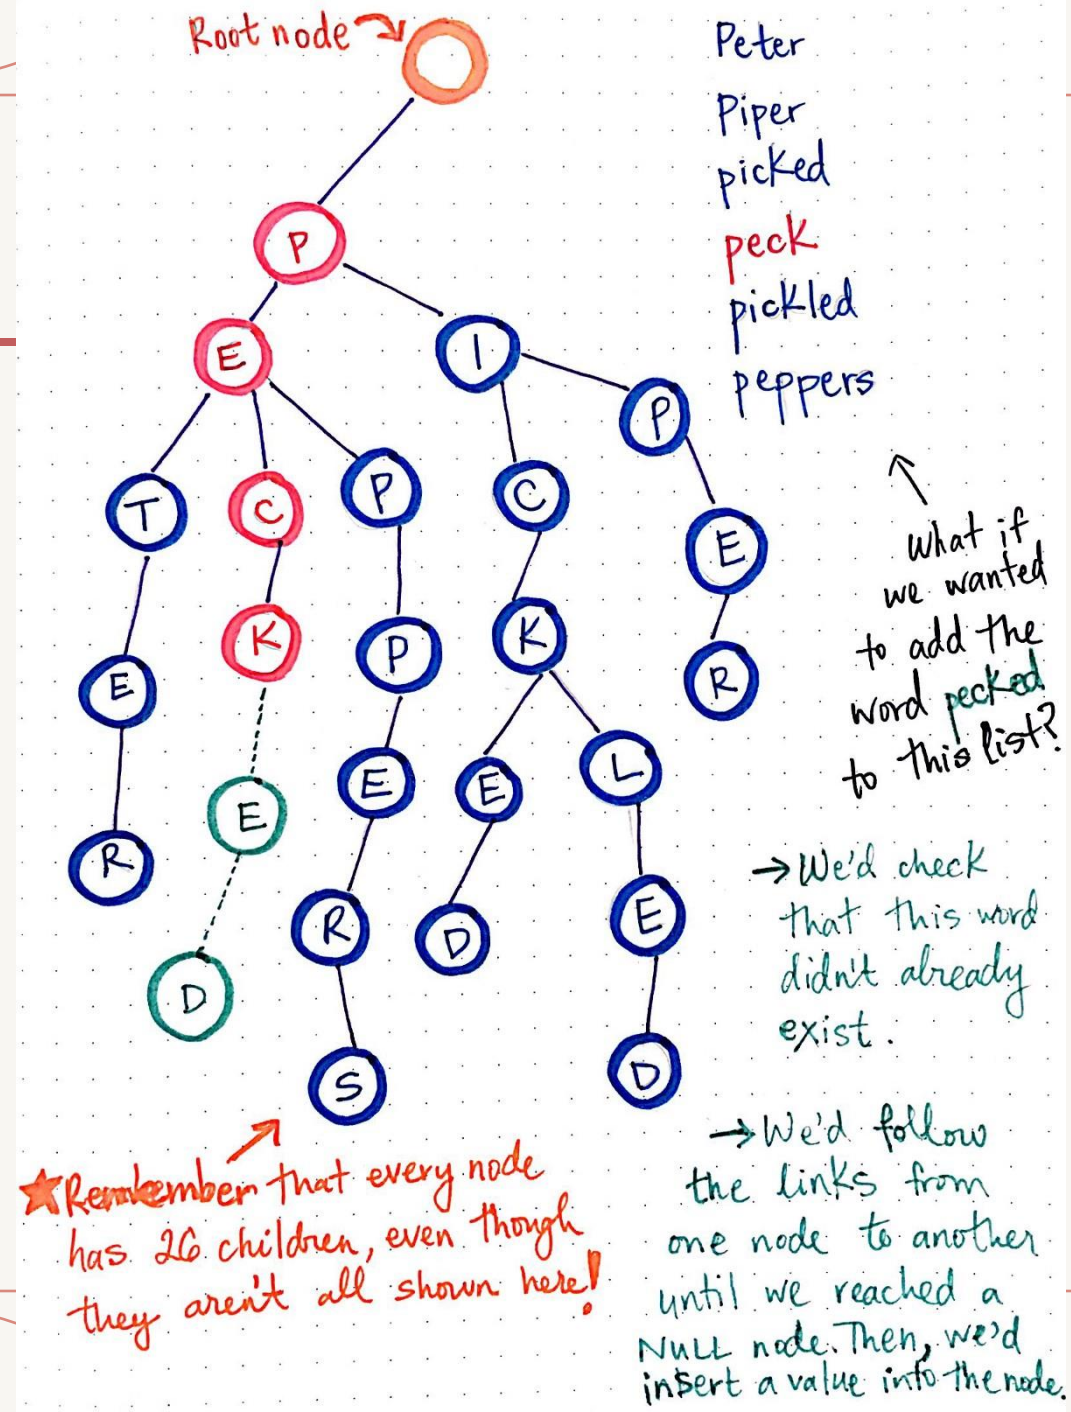 Root node
P
E
I
P
T
C
P
C
E
E
K
P
K
R
R
E
E
E
L
R
D
E
D
S
D
Peter
Piper
picked
peck
pickled
peppers
What if
we wanted
to add the
word pecked
to this list?
→ We'd check
that this word
didn't already
exist.
→ We'd follow
the links from
one node to another
until we reached a
NULL node. Then, we'd
insert a value into the node.
★ Remember that every node
has 26 children, even though
they aren't all shown here!